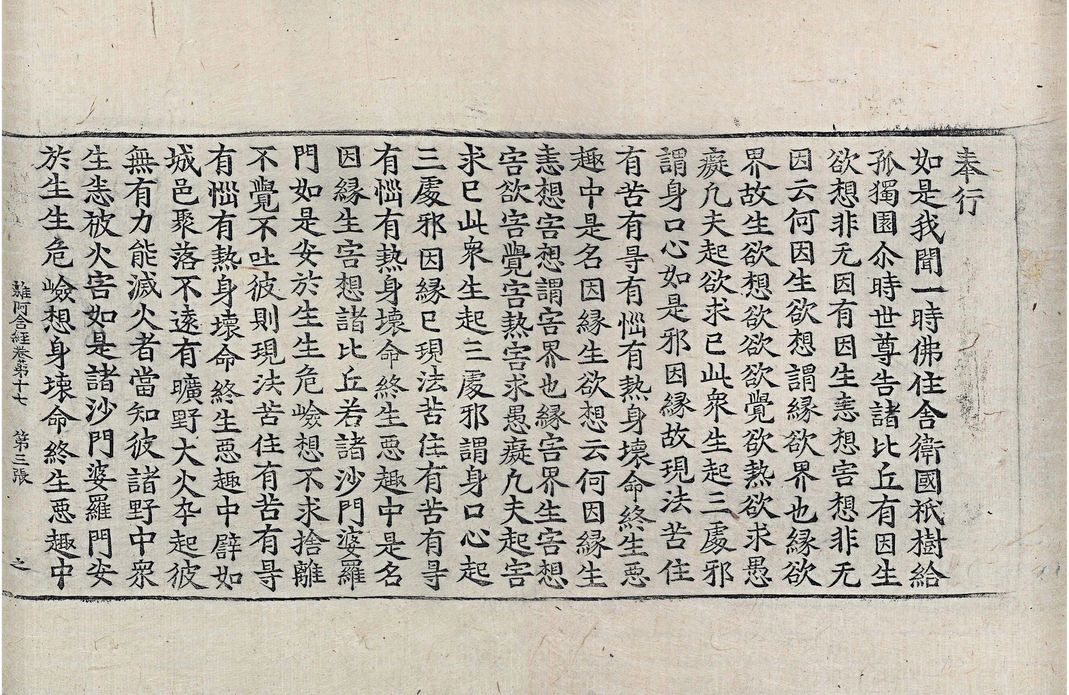 奉行
如是我聞一時佛住舍衛國祇樹給
孤獨園尒時世尊告諸比丘有因生
欲想非无因有因生恚想害想非无
因云何因生欲想謂緣欲界也緣欲
界故生欲想欲欲欲覺欲熱欲求愚
癡凡夫起欲求已此衆生起三處邪
謂身口心如是邪因緣故現法苦住
有苦有㝵有惱有熱身壞命終生惡
趣中是名因緣生欲想云何因緣生
恚想害想謂害界也緣害界生害想
害欲害覺害熱害求愚癡凡夫起害
求已此衆生起三處邪謂身口心起
三處邪因緣已現法苦住有苦有㝵
有惱有熱身壞命終生惡趣中是名
因緣生害想諸比丘若諸沙門婆羅
門如是安於生生危嶮想不求捨離
不覺不吐彼則現法苦住有苦有㝵
有惱有熱身壞命終生惡趣中譬如
城邑聚落不遠有曠野大火卒起彼
無有力能滅火者當知彼諸野中衆
生悉被火害如是諸沙門婆羅門安
於生生危嶮想身壞命終生惡趣中
雜阿含經卷第十七 第三張 之